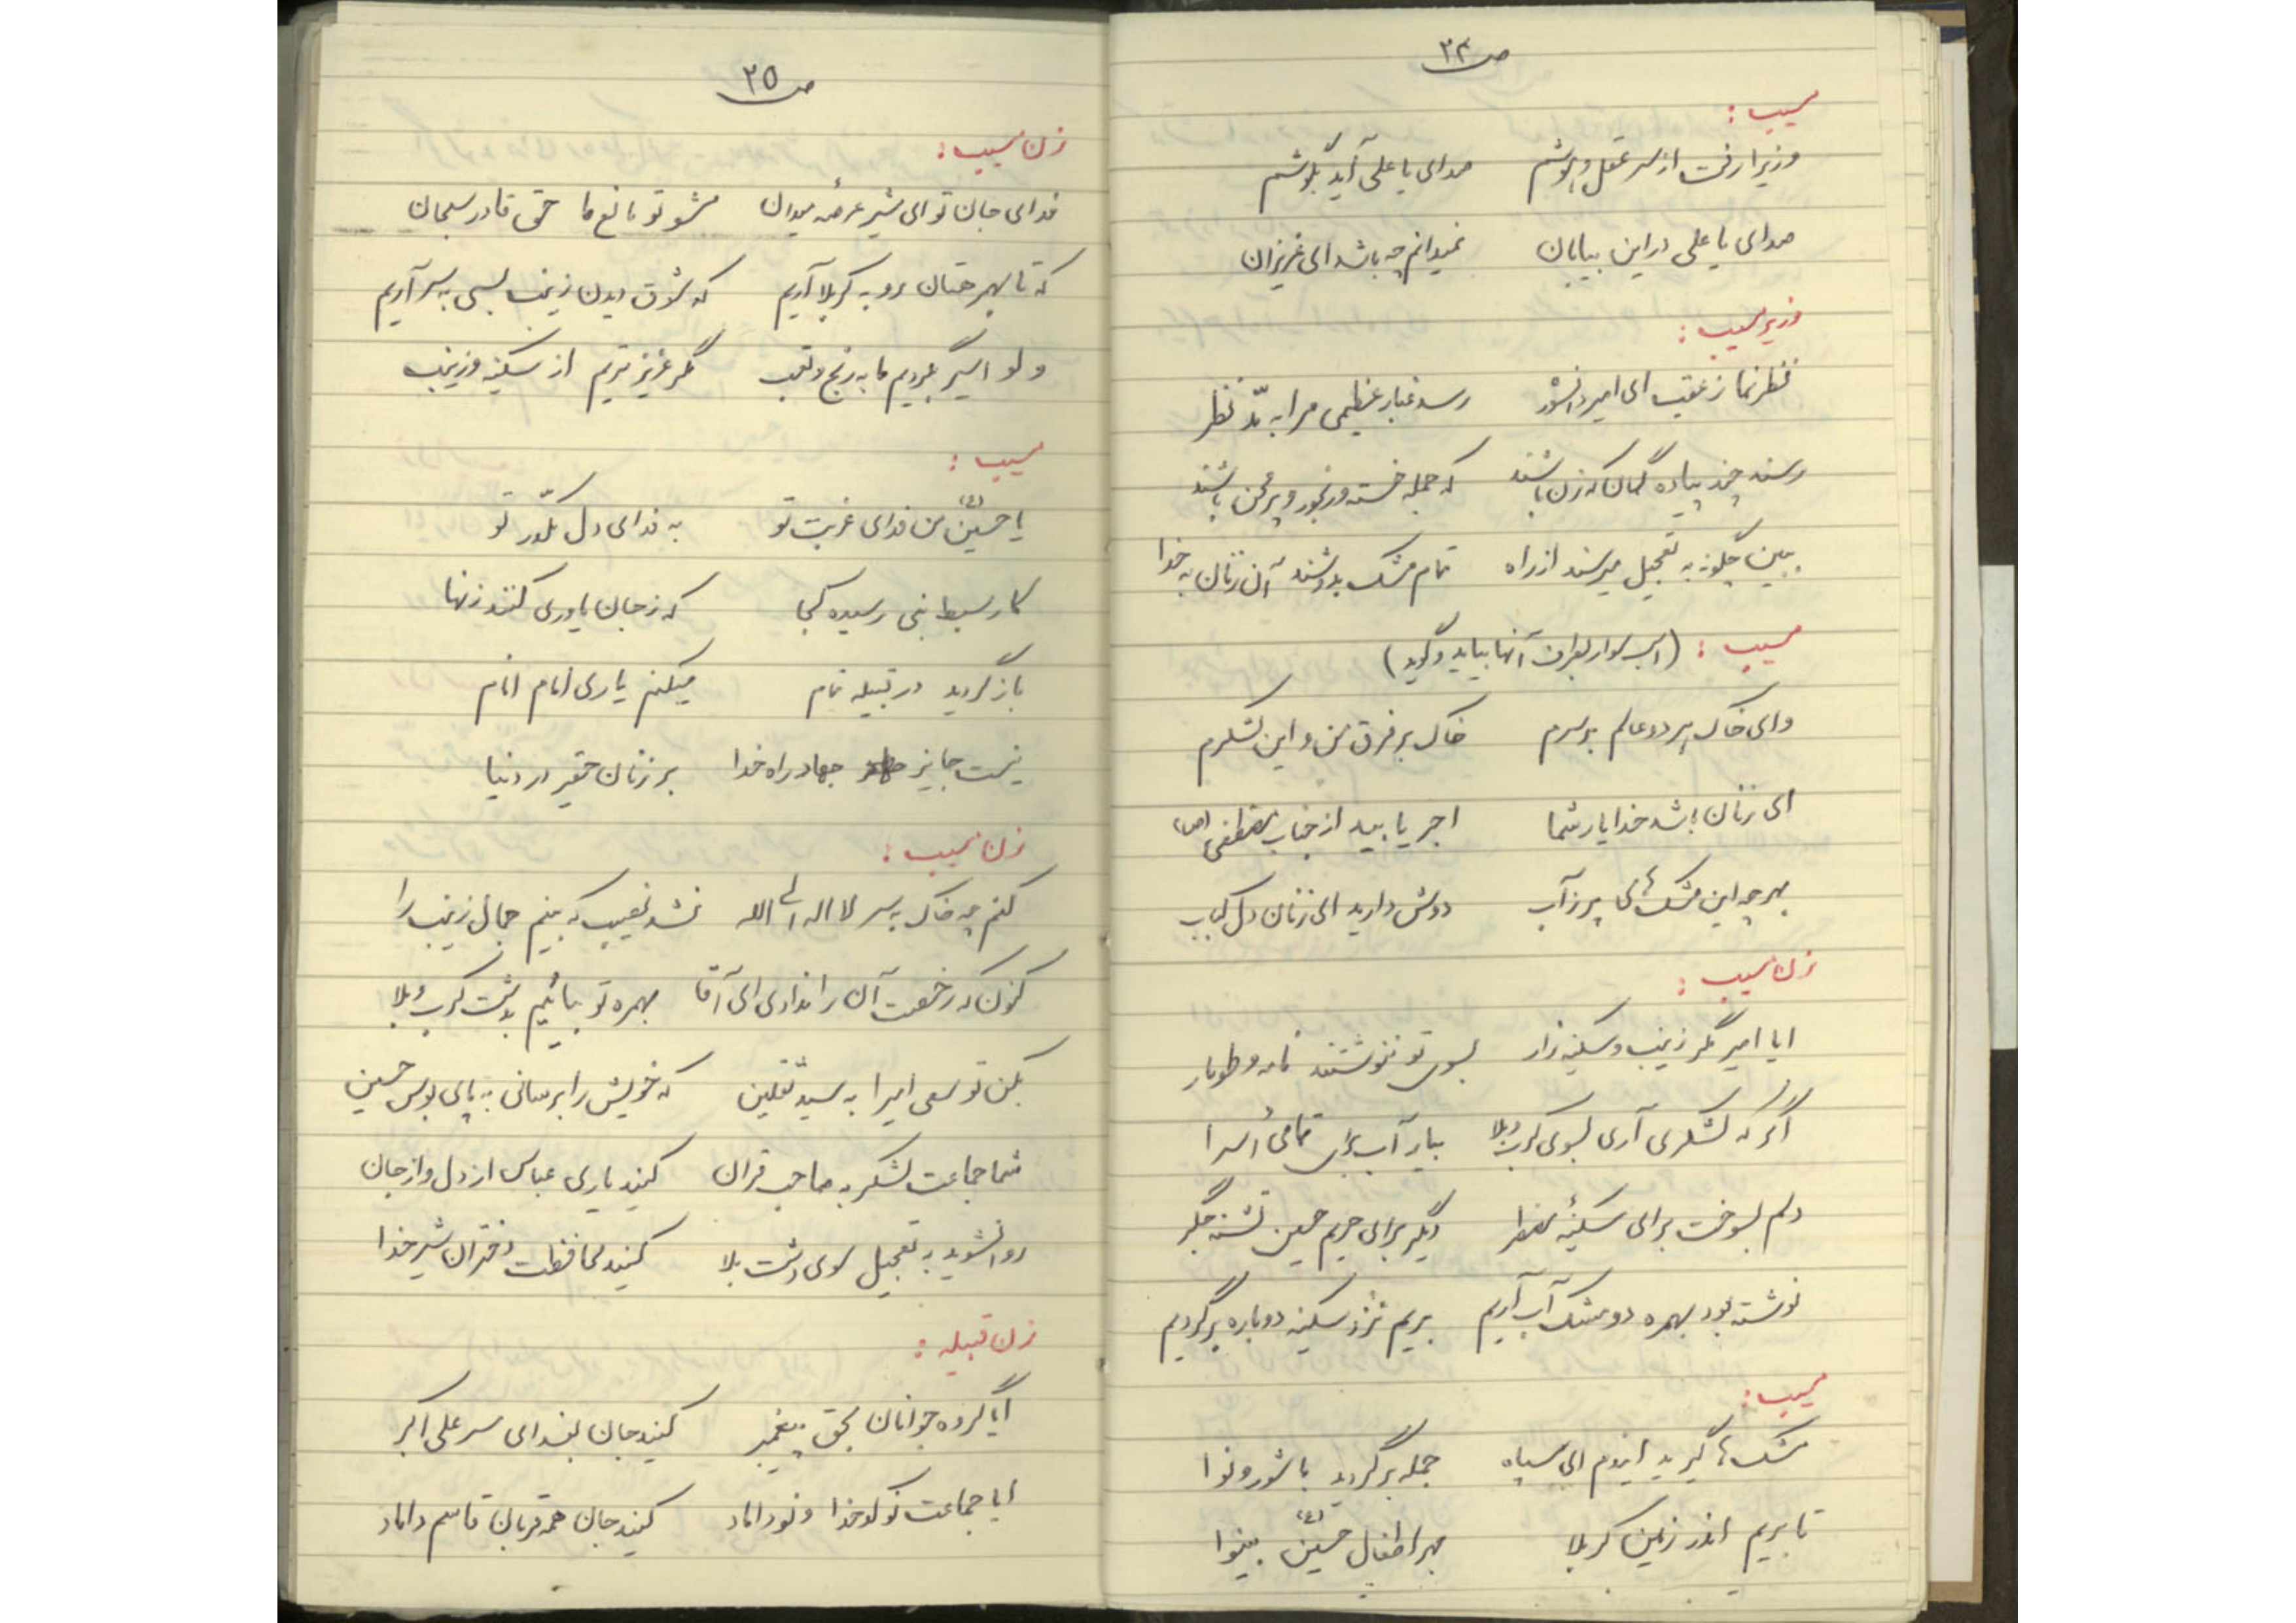 ص ۲۴
مسیب :
وزیرا رفت از سر عقل و هوشم صدای یا علی آید بگوشم
صدای یا علی در این بیابان نمیدانم چه باشد ای عزیزان
وزیر مسیب :
نظر نما ز عقب ای امیر دانشور رسد غبار عظیمی مرا به مدّ نظر
رسند چند پیاده گمان که زن باشند که جمله خسته و رنجور و پر محن باشند
ببین چگونه به تعجیل میرسند از راه تمام مشک بدوشند آن زنان به خدا
مسیب : (اسب سوار بطرف آنها بیاید و گوید)
وای خاک هر دو عالم بر سرم خاک بر فرق من و این لشکرم
ای زنان باشد خدا یار شما اجر یابید از جناب مصطفی (ص)
بهر چه این مشک های پر ز آب دوش دارید ای زنان دل کباب
زن مسیب :
ایا امیر مگر زینب و سکینه زار بسوی تو ننوشتند نامه و طومار
اگر که لشکری آری بسوی کرب و بلا بیار آب برای تمامی اُسرا
دلم بسوخت برای سکینهٔ مضطر دیگر برای حریم حسین تشنه جگر
نوشته بود بهمره دو مشک آب آریم بریم نزد سکینه دوباره برگردیم
مسیب :
مشک ها گیرید ایندم ای سپاه جمله برگردید با شور و نوا
تا بریم اندر زمین کربلا بهر اطفال حسین (ع) بینوا
ص ۲۵
زن مسیب :
فدای جان تو ای شیر عرصه میدان مشو تو مانع ما حق قادر سبحان
که تا بهر جنان رو به کربلا آریم که شوق دیدن زینب بسی به سر آریم
ولو اسیر بگردیم ما به رنج و تعب مگر عزیز تریم از سکینه و زینب
مسیب :
یا حسین (ع) من فدای غربت تو به فدای دل مکدّر تو
کار سبط نبی رسیده کجا که ز جان یاوری کنند زنها
باز گردید در قبیله تمام میکنم یاری امام انام
نیست جایز جهاد راه خدا بر زنان حقیر در دنیا
زن مسیب :
کنم چه خاک به سر لا اله الی الله نشد نصیب که بینم جمال زینب را
کنون که رخصت آن را ندادی ای آقا بهمره تو بیائیم بدشت کرب و بلا
بکن تو سعی امیرا به سیّد ثقلین که خویش را برسانی به پای بوس حسین
شما جماعت لشکر به صاحب قرآن کنید یاری عباس از دل و از جان
روانشوید به تعجیل سوی دشت بلا کنید محافظت دختران شیر خدا
زن قبیله :
ایا گروه جوانان بحق پیغمبر کنید جان بفدای سر علی اکبر
ایا جماعت نو کدخدا و نو داماد کنید جان همه قربان قاسم داماد